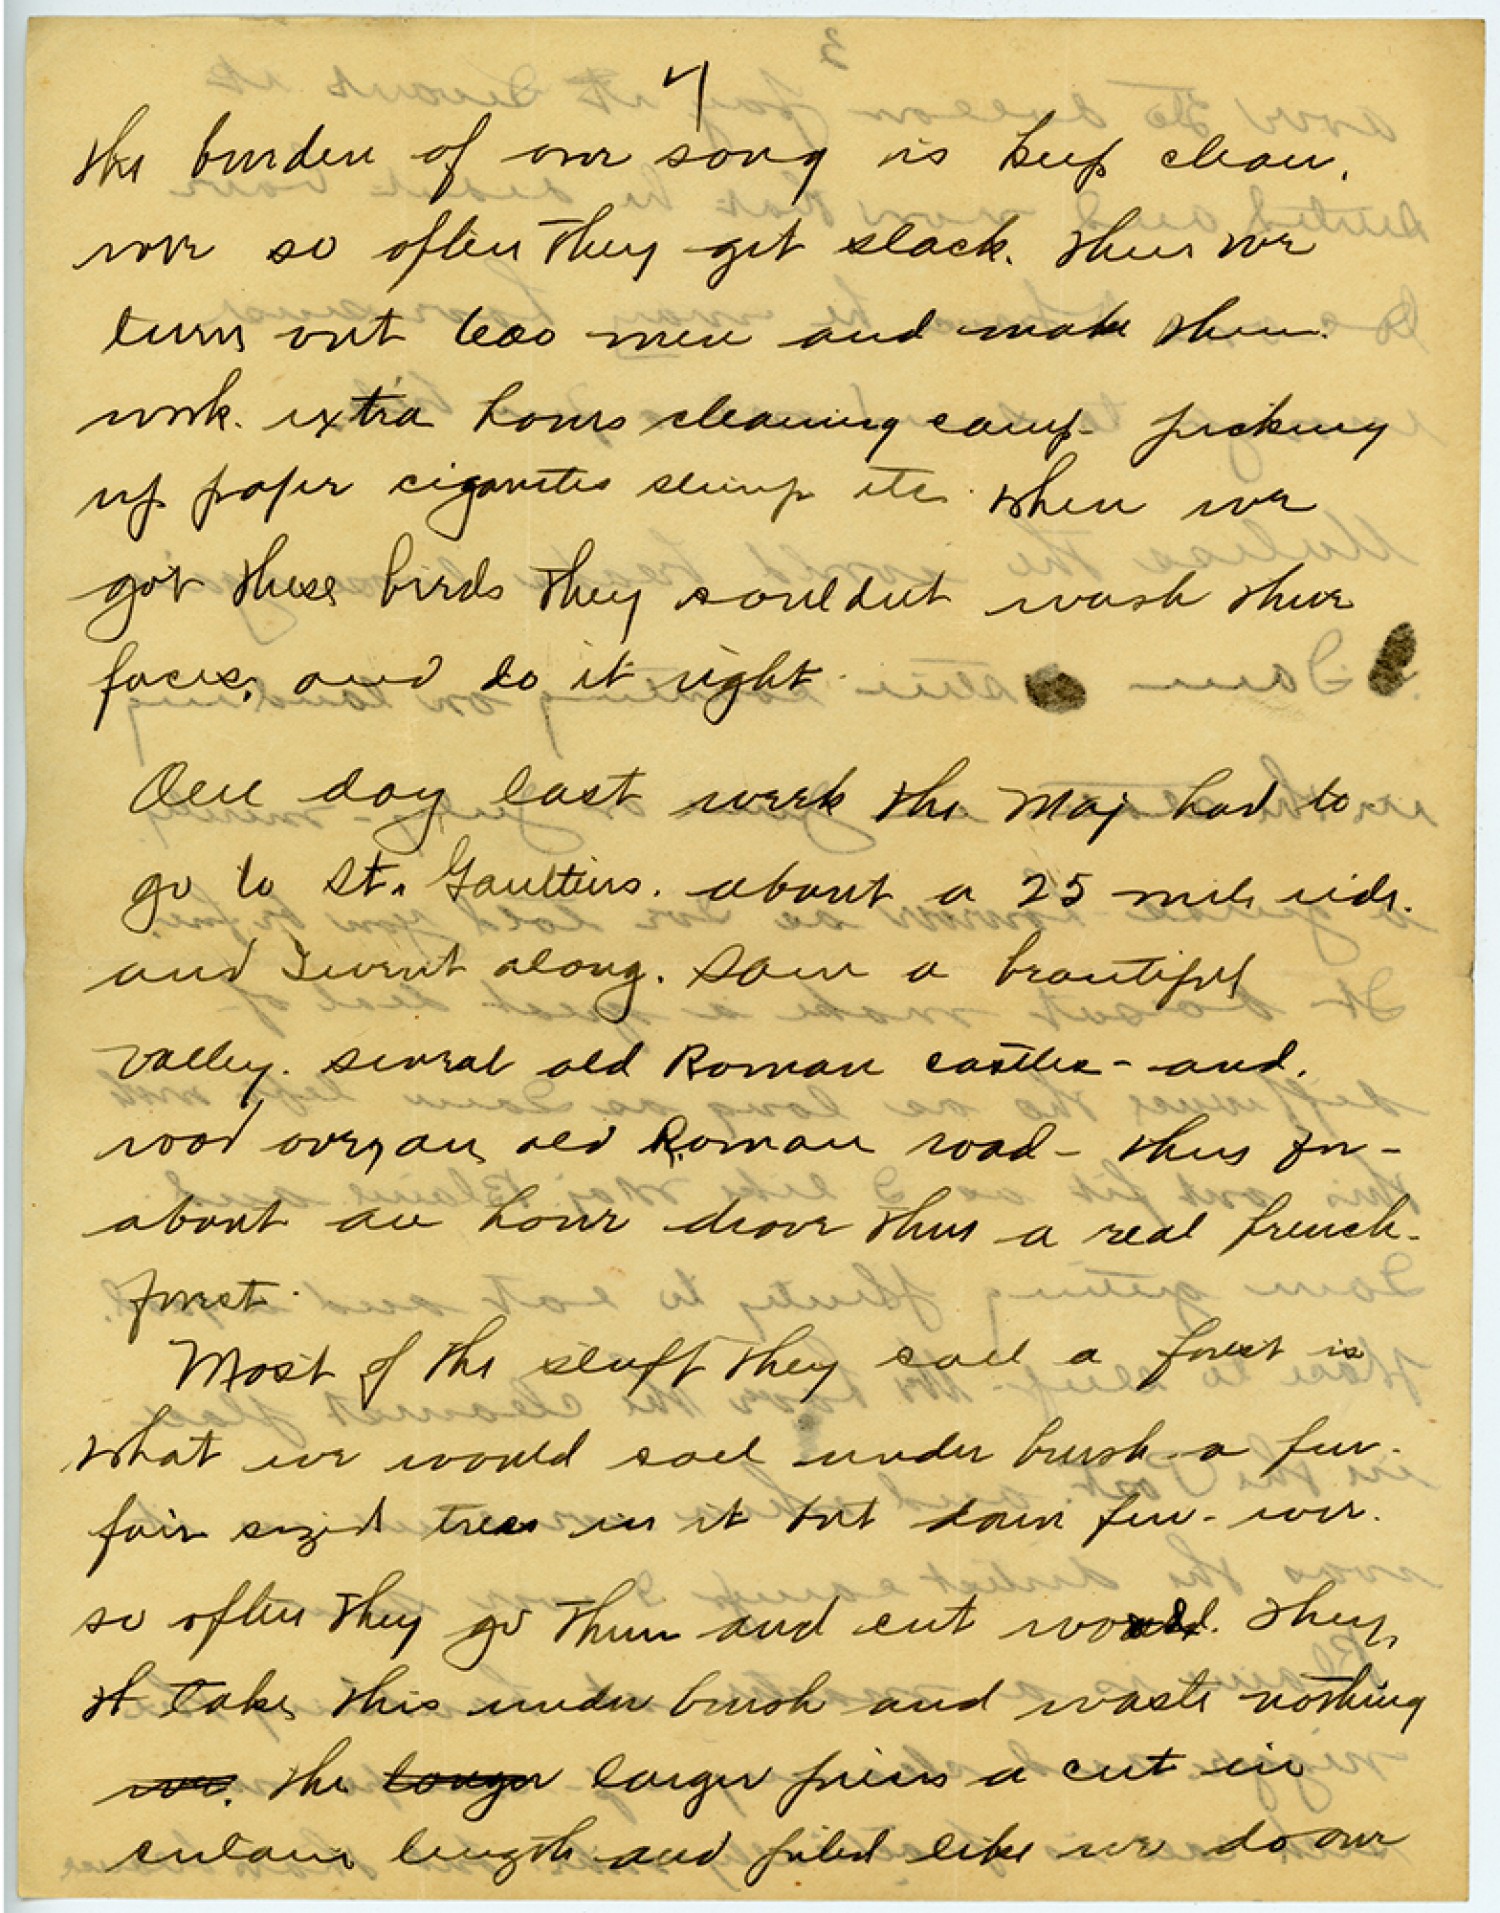 4
the burden of our song is keep clean.
ever so often they get slack. then we
turn out 600 men and make them
work extra hours cleaning camp - picking
up paper cigarettes stump etc. When we
got these birds they couldnt wash their
faces, and do it right.
One day last week the Maj had to
go to St. Gaultiers. about a 25 mile ride.
and I went along. Saw a beautiful
valley. several old Roman castles - and.
rood over, an old Roman road - thus for -
about an hour drove thru a real french -
forest.
Most of the stuff they call a forest is
What we would call under brush - a few -
fair sized trees in it but darn few - ever.
so often they go thru and cut wood. They
take this under brush and waste nothing
the larger pieces a cut in
certain length and piled like we do our